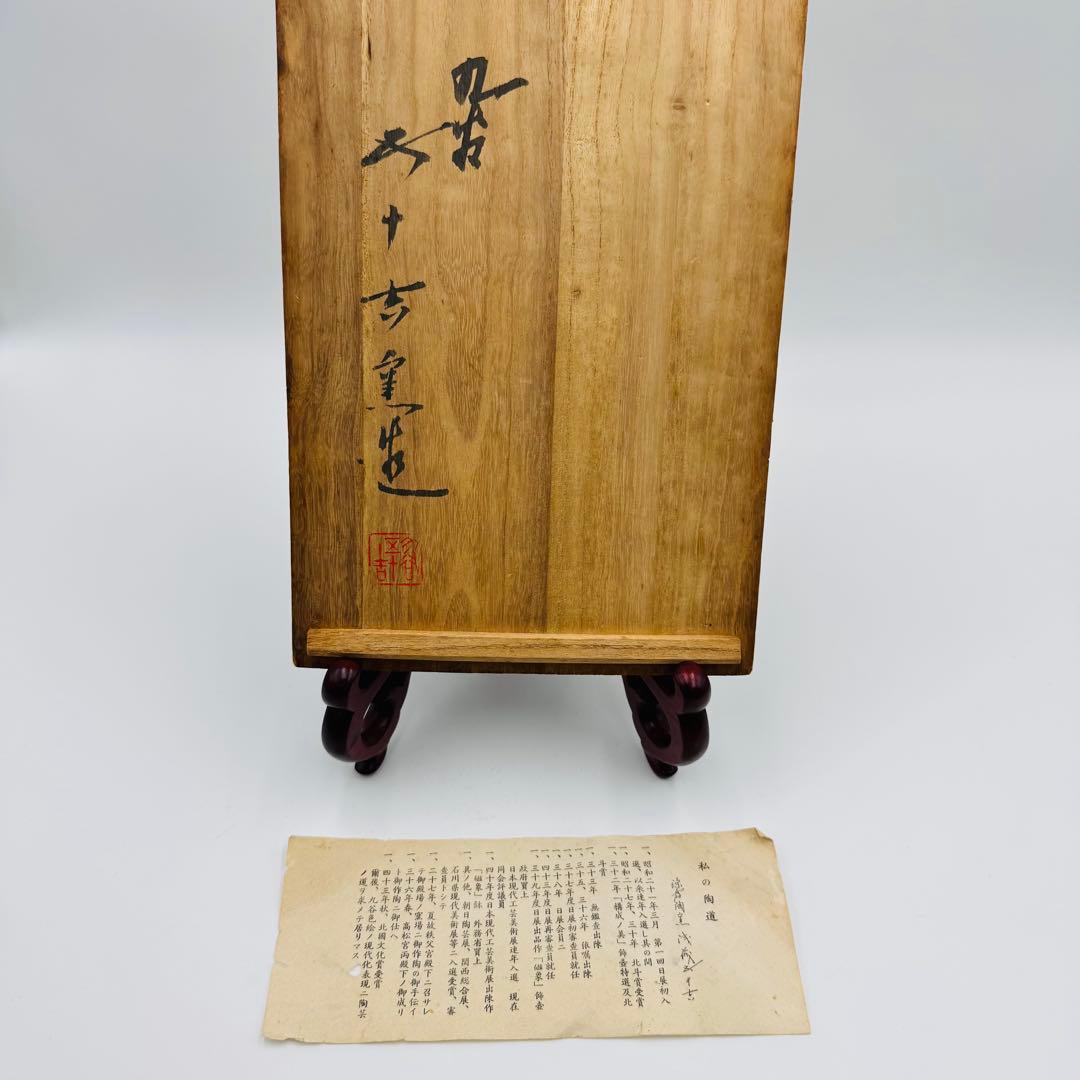 九谷
五十吉窯造
九谷五十吉
私の陶道
深香陶窯 浅蔵五十吉
一、昭和二十一年三月 第一回日展初入
選、以来連年入選、其の間
一、昭和二十七年、三十年 北斗賞受賞
一、三十二年「構成ノ美」飾壷特選及北
斗賞
一、三十三年 無鑑査出陳
一、三十五、三十六年 依嘱出陳
一、三十七年度日展初審査員就任
一、三十八年 日展会員ニ
一、四十三年度日展再審査員就任
一、三十九年度日展出品作「磁象」飾壷
政府買上
日本現代工芸美術展連年入選 現在
同会評議員
一、四十年度日本現代工芸美術展出陳作
「磁象」鉢 外務省買上
一、其ノ他、朝日陶芸展、関西総合展、
石川県現代美術展等ニ入選受賞、審
査員トシテ
一、二十七年、夏故秩父宮殿下ニ召サレ
テ御殿場ノ窯場ニ御作陶の御手伝イ
一、三十六年春、高松宮両殿下ノ御成リ
ト御作陶ニ御仕ヘ
一、四十三年秋、北國文化賞受賞
爾後、九谷色絵ノ現代化表現ニ陶芸
ノ道ヲ求メテ居リマス